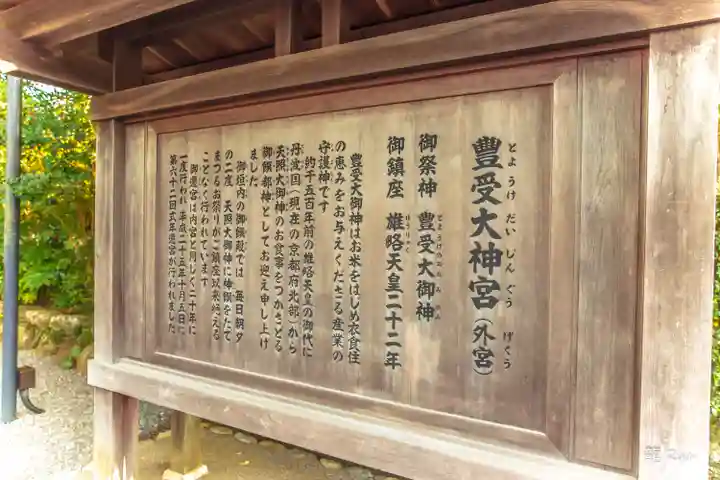 豊受大神宮（外宮）
とようけだいじんぐう げくう
御祭神 豊受大御神
とようけのおおみかみ
御鎮座 雄略天皇二十二年
ゆうりゃく
豊受大御神はお米をはじめ衣食住
の恵みをお与えくださる産業の
守護神です
約千五百年前の雄略天皇の御代に
丹波国（現在の京都府北部）から
天照大御神のお食事をつかさどる
御饌都神としてお迎え申し上げ
ました
御垣内の御饌殿では 毎日朝夕
の二度 天照大御神に神饌をたて
まつるお祭りがご鎮座以来絶える
ことなく行われています
御遷宮は内宮と同じく二十年に
一度行われ 平成二十五年十月五日に
第六十二回式年遷宮が行われました